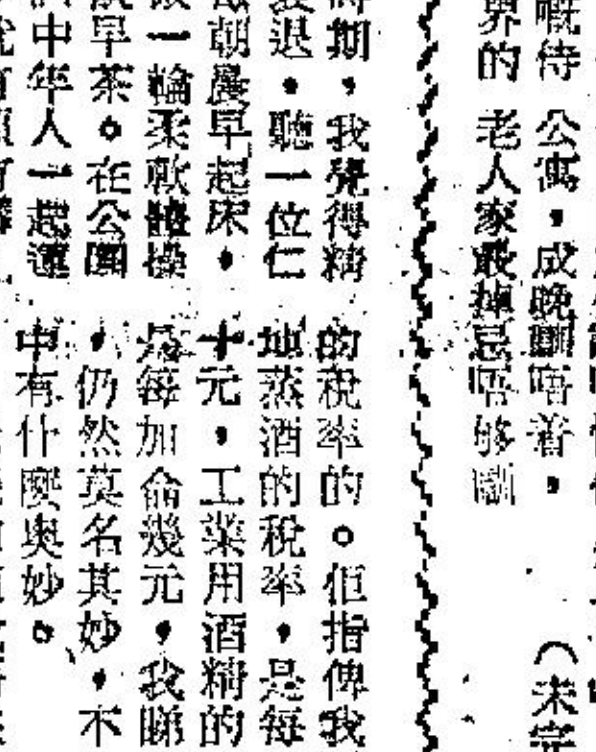 嘅待 公寓，成晚瞓唔着，
界的 老人家最掉忌唔够瞓
（未完
期，我覺得精
退，聽一位仁
朝晨早起床，
一輪柔軟體操
早茶。在公園
中年人一起運
的稅率的。但指俾我
地蒸酒的稅率，是每
十元，工業用酒精的
是每加侖幾元，我睇
，仍然莫名其妙，不
中有什麼奥妙。